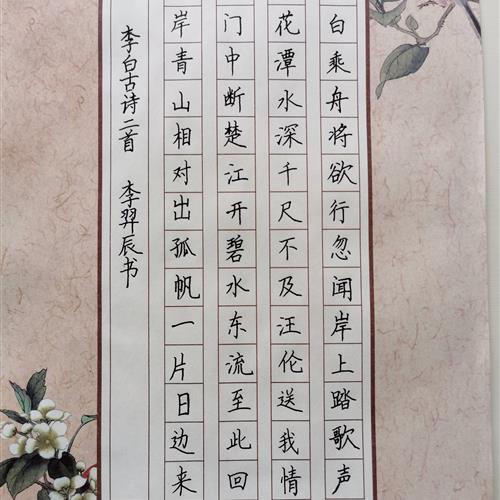 白乘舟将欲行忽闻岸上踏歌声
花潭水深千尺不及汪伦送我情
门中断楚江开碧水东流至此回
岸青山相对出孤帆一片日边来
李白古诗二首 李羿辰书